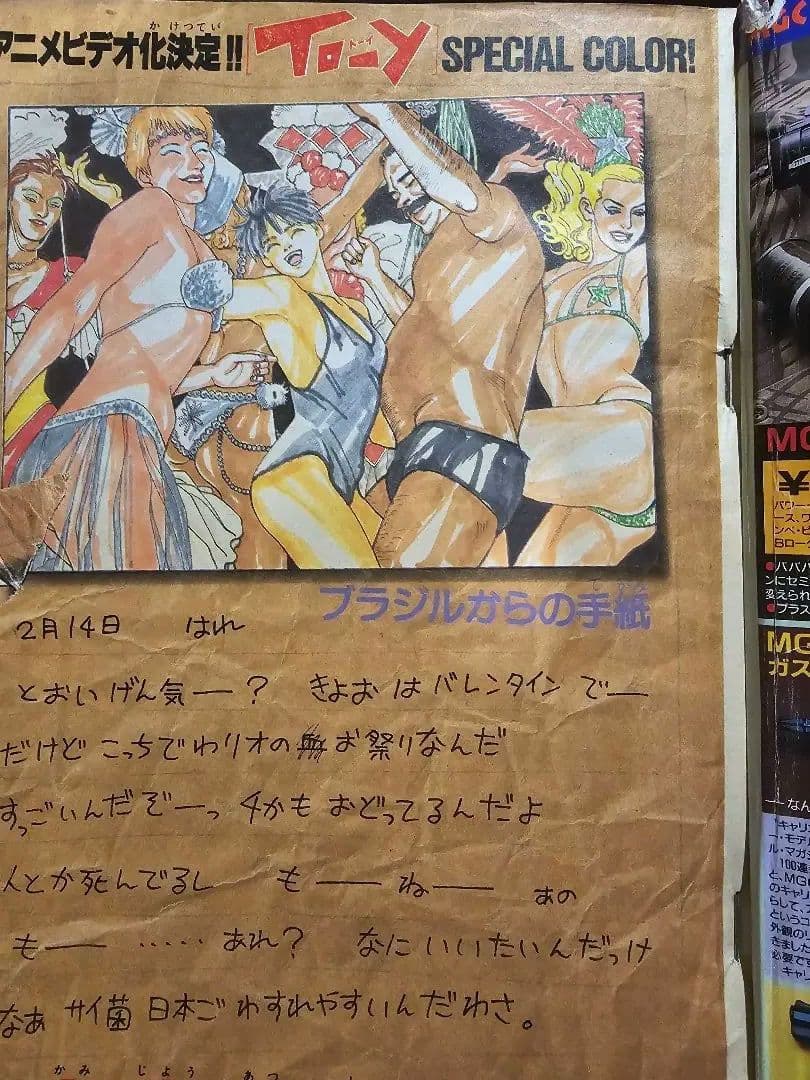 アニメビデオ化決定!!
かけってい
To-y
トーイ
SPECIAL COLOR!
ブラジルからの手紙
2月14日 はれ
とおいげん気ー? きょお は バレンタイン でー
だけど こっちでわリオの お祭りなんだ
すっごいんだぞーっ 4かも おどってるんだよ
人とか死んでるし もー ねー あの
もー ‥‥‥ あれ? なに いいたいんだっけ
なあ サイ菌 日本ご わすれやすいんだわさ。
かみ じょう あつ
MG
¥
パワー
ース、ワ
ンペ・ビ
Bロー
●パパパ
ンにセミ
変えられ
●プラス
MG
ガス
── なん
"キャリ
ー・モデル
ル・マガジ
100連
と、MG
のキャリ
らして、
というコ
外観のリ
きました
必要です
キャリ